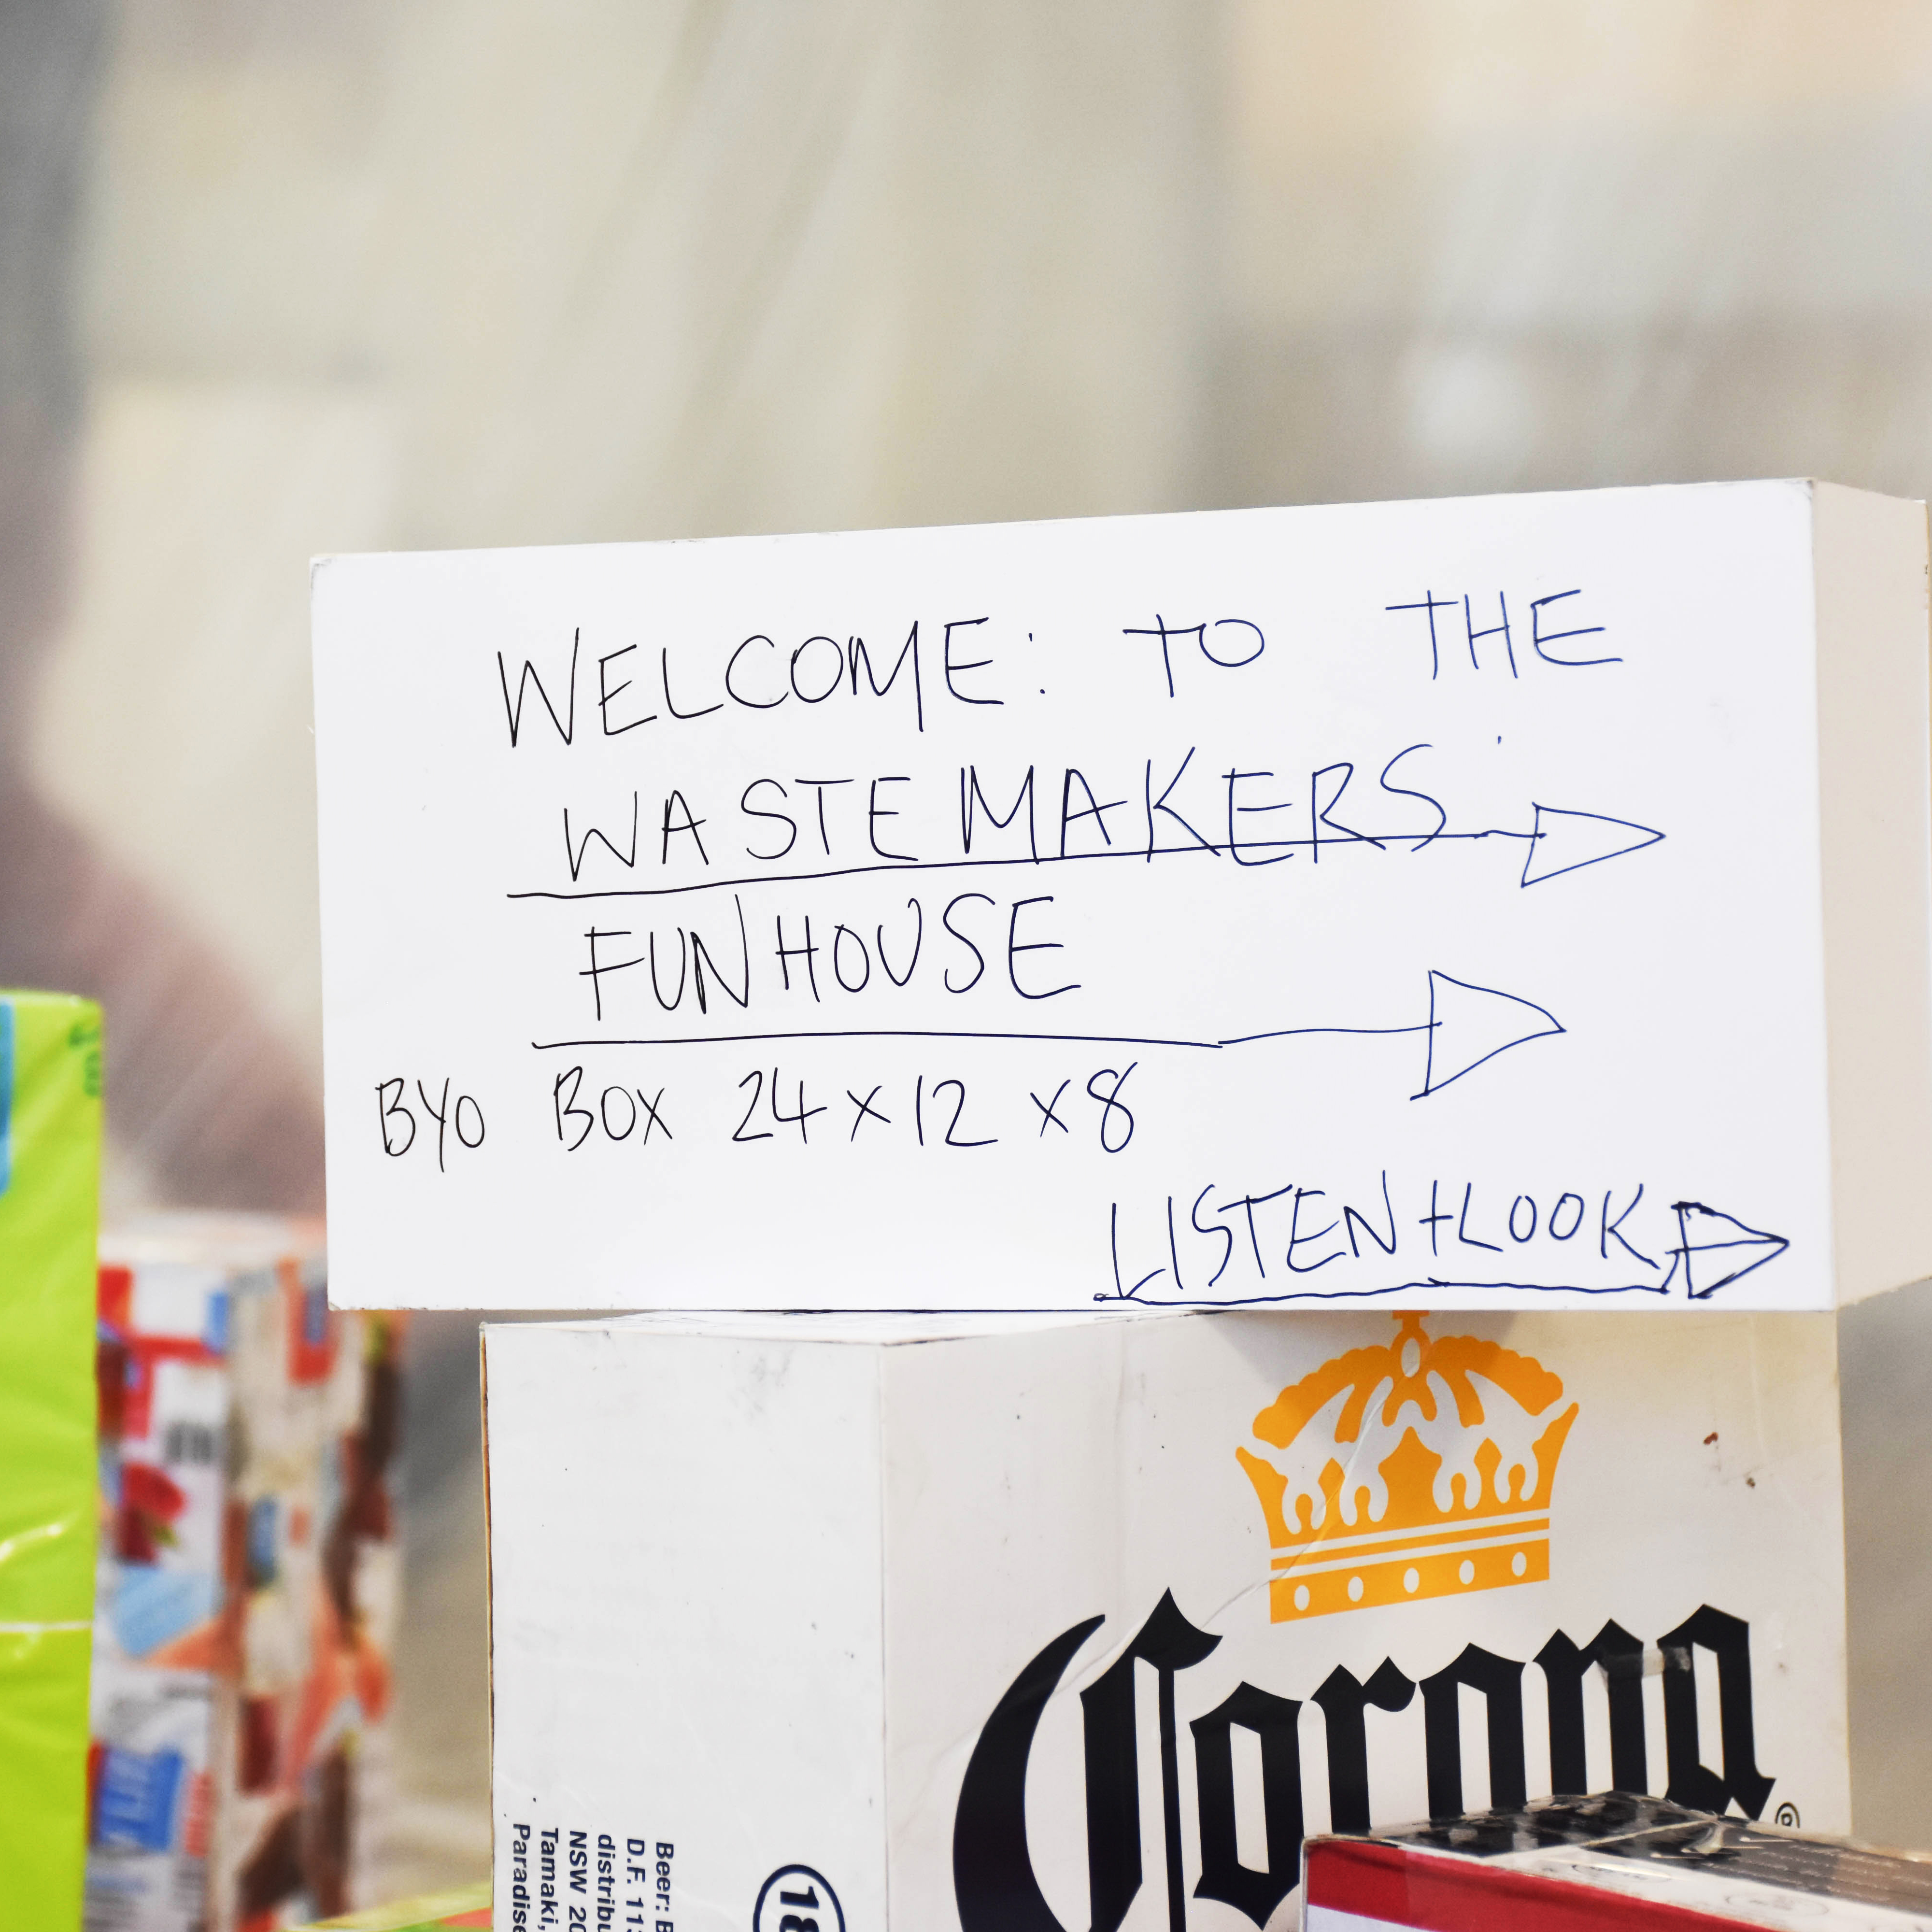 WELCOME: TO THE
WASTEMAKERS
FUNHOUSE
BYO BOX 24x12x8
LISTEN+LOOK
Corona
®
18
Beer:
D.F.
distribu
NSW
Tamaki,
Paradise